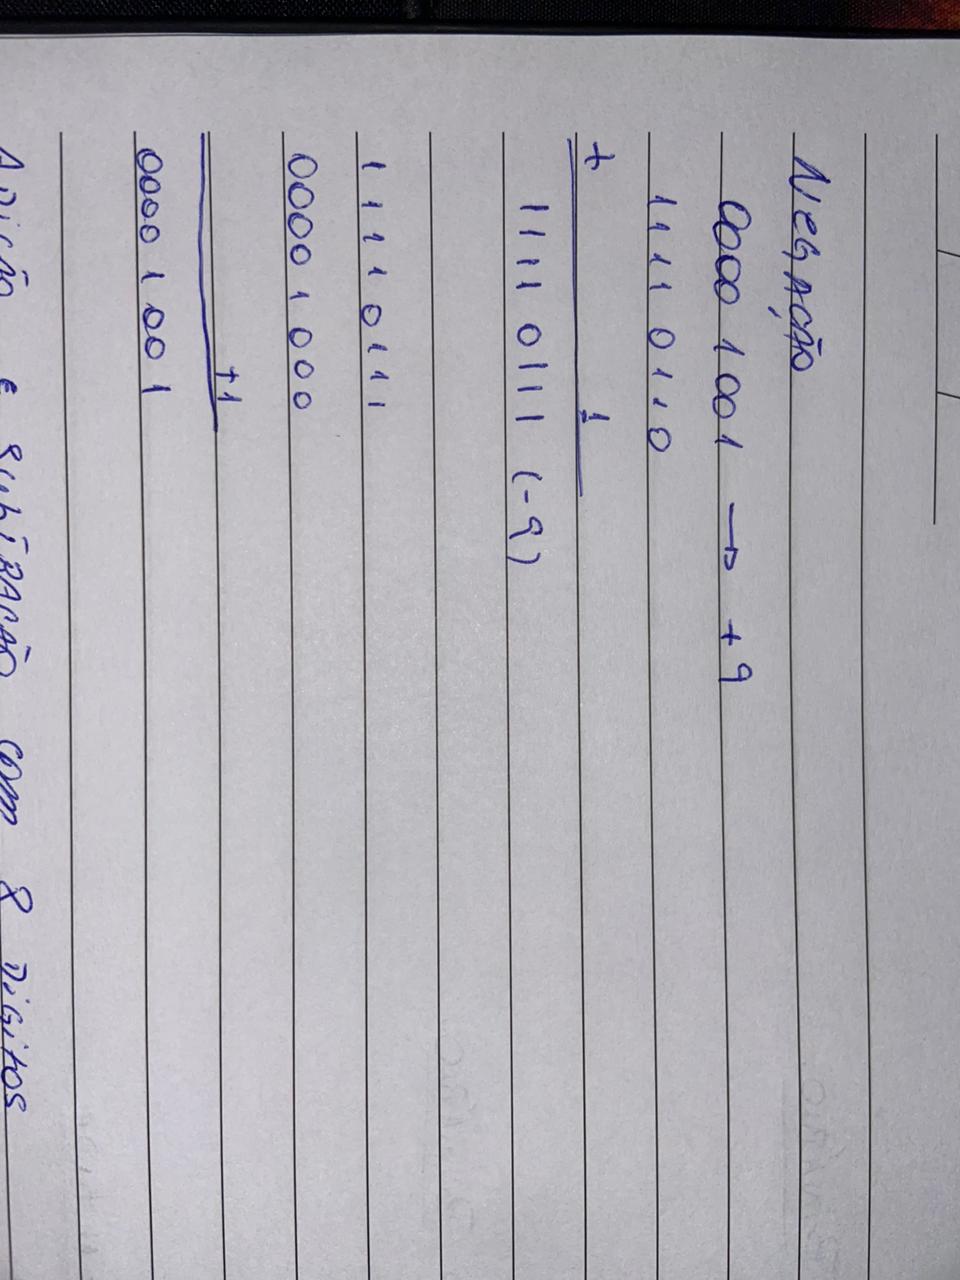 Negação
0000 1001 → +9
1111 0110
+ 1
1111 0111 (-9)
1111 0111
0000 1000
+1
0000 1001
Adição e subtração com 8 Digitos